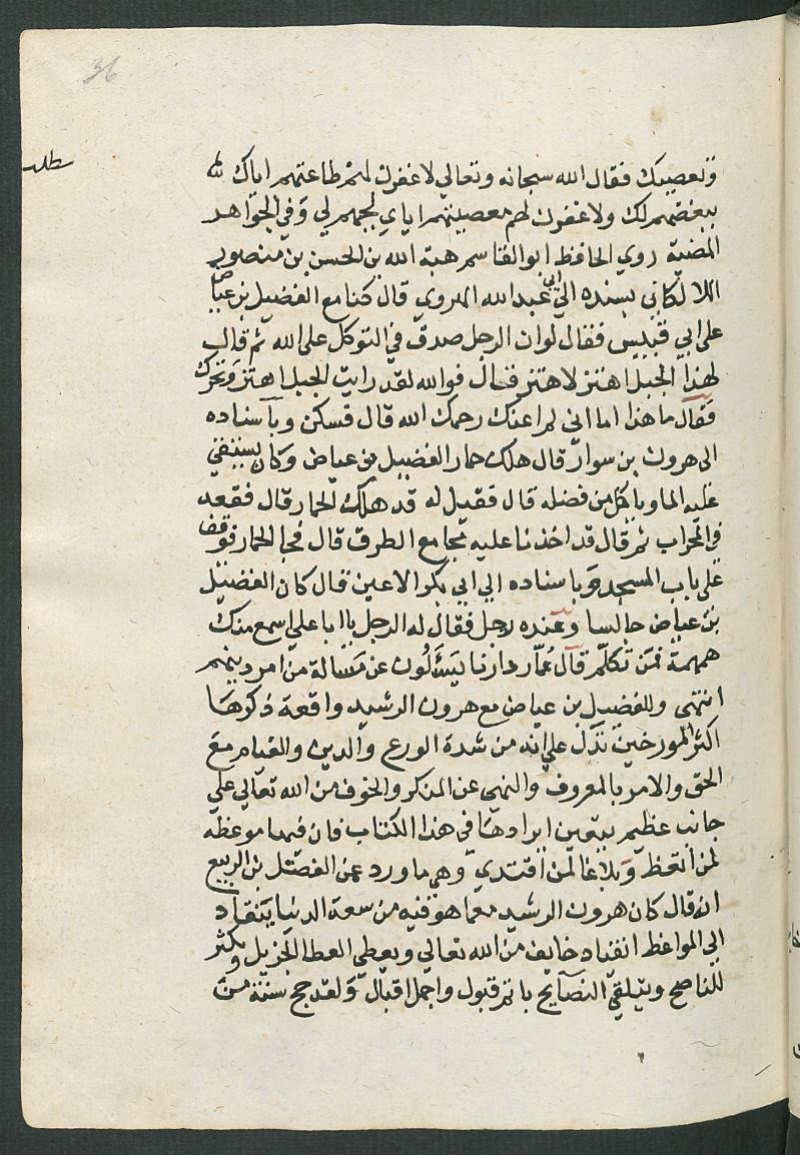 36
مطلب
وتعصيك فقال الله سبحانه وتعالي لاغفرن لهم طاعتهم اياك لي
ببغضهم لك ولاغفرن لهم معصيتهم اياي لحبهم لي وفي الجواهر
المضية روي الحافظ ابو القاسم هبة الله بن الحسن بن منصور
اللالكاني بسنده الي ابي عبد الله الهروي قال كنا مع الفضيل بن عياض
على ابي قبيس فقال لو ان الرجل صدق في التوكل على الله ثم قال
لهذا الجبل اهتز لاهتز قال فوالله لقد رايت الجبل اهتز وتحرك
فقال ما هذا اما اني لم اعنك رحمك الله قال فسكن وباسناده
الى هرون بن سوار قال هلك حمار الفضيل بن عياض وكان يستقي
عليه الما وياكل من فضله قال فقيل له قد هلك الحمار قال فقعد
في المحراب ثم قال قد اخذنا عليه مجامع الطرق قال فجا الحمار فوقف
على باب المسجد وباسناده الي ابي بكر الاعين قال كان الفضيل
بن عياض جالسا وعنده رجل فقال له الرجل يا ابا علي اسمع منك
همهمة فمن تكلم قال عمار دارنا يسئلون عن مسالة من امر دينهم
انتهى وللفضيل بن عياض مع هرون الرشيد واقعة ذكرها
اكثر المورخين تدل علي انه من شدة الورع والدين والقيام مع
الحق والامر بالمعروف والنهي عن المنكر والخوف من الله تعالي علي
جانب عظيم يتعين ايرادها في هذا الكتاب فان فيها موعظه
لمن اتعظ وبلاغا لمن اقتدي وهي ما ورد عن الفضل بن الربيع
انه قال كان هرون الرشيد مع ما هو فيه من سعة الدنيا ينقاد
الي المواعظ انقياد خايف من الله تعالي ويعطي العطا الجزيل ويكثر
للناصح ويتلقي النصايح باتم قبول واجمل اقبال ولقد حج سنة من